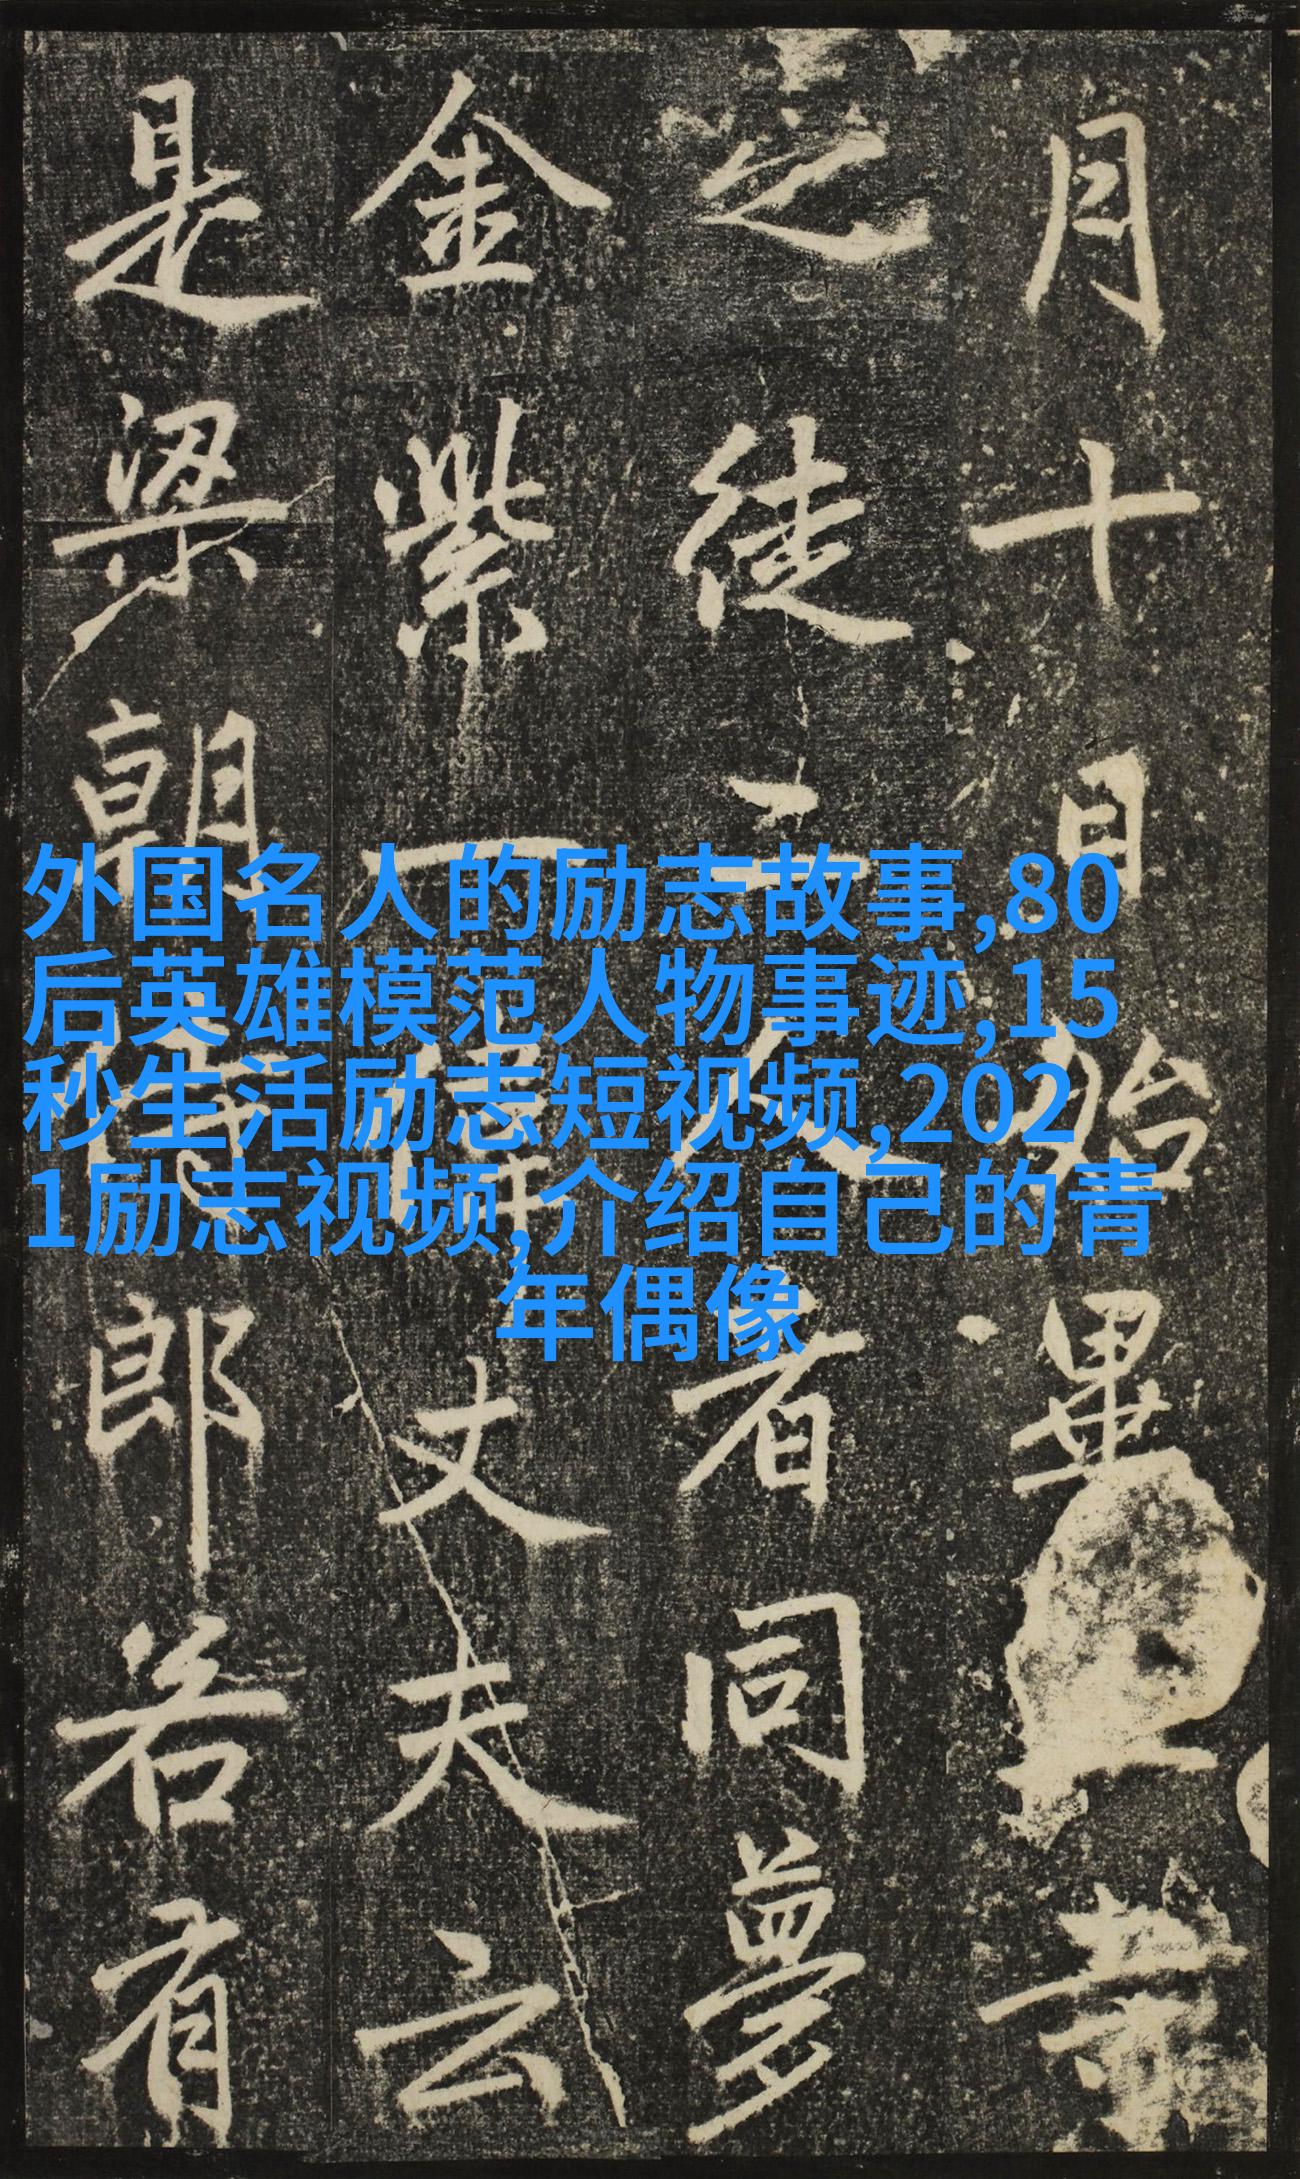 外国名人的励志故事,80
后英雄模范人物事迹,15
秒生活励志短视频,202
1励志视频,介绍自己的青
年偶像
月十日始畢
之徒二人者同夢
金紫一偉丈夫云
是梁朝侍郎若有